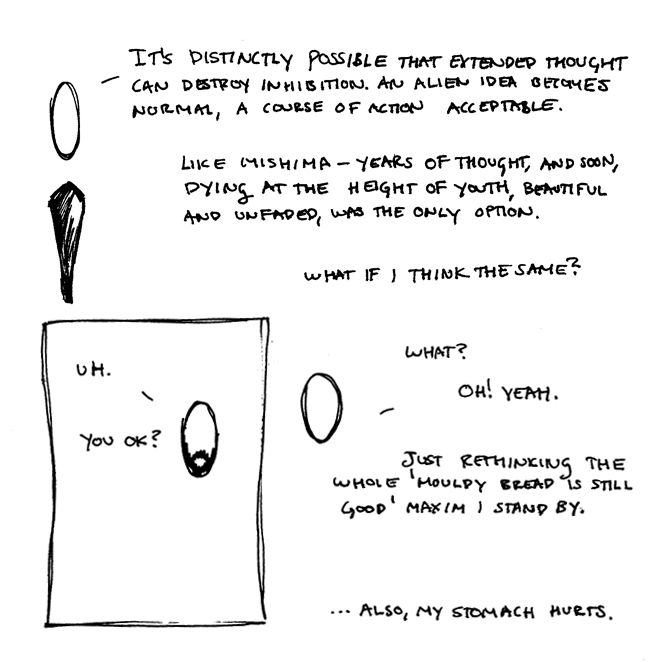 IT'S DISTINCTLY POSSIBLE THAT EXTENDED THOUGHT
CAN DESTROY INHIBITION. AN ALIEN IDEA BECOMES
NORMAL, A COURSE OF ACTION ACCEPTABLE.
LIKE MISHIMA – YEARS OF THOUGHT, AND SOON,
DYING AT THE HEIGHT OF YOUTH, BEAUTIFUL
AND UNFADED, WAS THE ONLY OPTION.
WHAT IF I THINK THE SAME?
UH.
YOU OK?
WHAT?
OH! YEAH.
JUST RETHINKING THE
WHOLE 'MOULDY BREAD IS STILL
GOOD' MAXIM I STAND BY.
... ALSO, MY STOMACH HURTS.